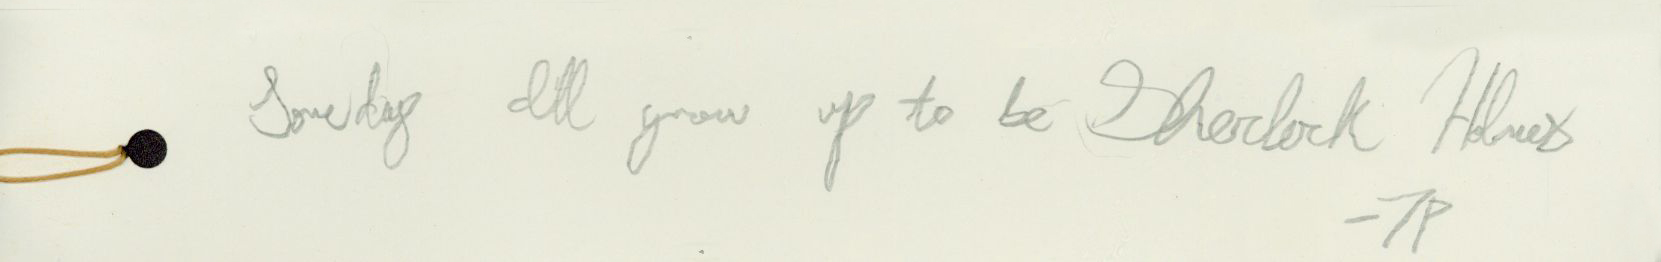 Someday I'll grow up to be Sherlock Holmes
-TP